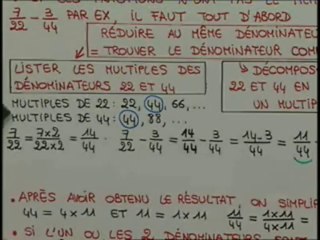 7/22 - 3/44 PAR EX, IL FAUT TOUT D'ABORD
RÉDUIRE AU MÊME DÉNOMINATEUR
= TROUVER LE DÉNOMINATEUR COM
LISTER LES MULTIPLES DES
DÉNOMINATEURS 22 ET 44
MULTIPLES DE 22 : 22, 44, 66, ...
MULTIPLES DE 44 : 44, 88, ...
DÉCOMPOS
22 ET 44 EN
UN MULTIP
7/22 = 7×2/22×2 = 14/44 · 7/22 - 3/44 = 14/44 - 3/44 = 14-3/44 = 11/44
• APRÈS AVOIR OBTENU LE RÉSULTAT, ON SIMPLI
44 = 4×11 ET 11 = 1×11 11/44 = 1×11/4×11 =
• SI L'UN OU LES 2 DÉNOMINATEURS SONT